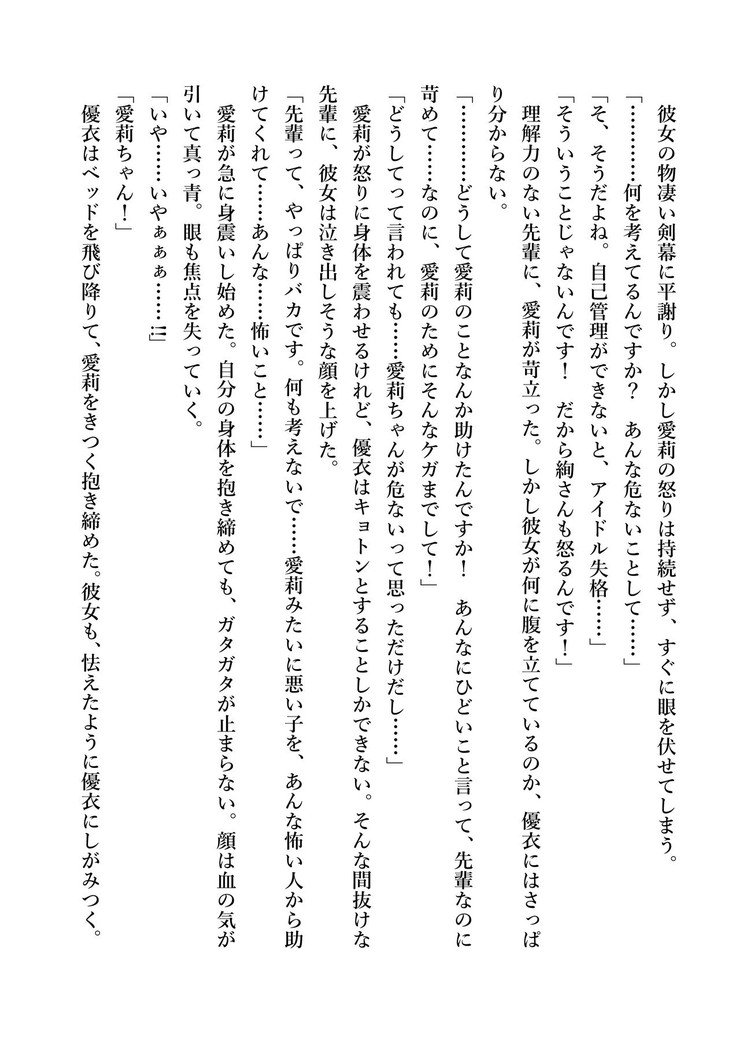 彼女の物凄い剣幕に平謝り。しかし愛莉の怒りは持続せず、すぐに眼を伏せてしまう。
「…………何を考えてるんですか？　あんな危ないことして……」
「そ、そうだよね。自己管理ができないと、アイドル失格……」
「そういうことじゃないんです！　だから絢さんも怒るんです！」
　理解力のない先輩に、愛莉が苛立った。しかし彼女が何に腹を立てているのか、優衣にはさっぱ
り分からない。
「…………どうして愛莉のことなんか助けたんですか！　あんなにひどいこと言って、先輩なのに
苛めて……なのに、愛莉のためにそんなケガまでして！」
「どうしてって言われても……愛莉ちゃんが危ないって思っただけだし……」
　愛莉が怒りに身体を震わせるけれど、優衣はキョトンとすることしかできない。そんな間抜けな
先輩に、彼女は泣き出しそうな顔を上げた。
「先輩って、やっぱりバカです。何も考えないで……愛莉みたいに悪い子を、あんな怖い人から助
けてくれて……あんな……怖いこと……」
　愛莉が急に身震いし始めた。自分の身体を抱き締めても、ガタガタが止まらない。顔は血の気が
引いて真っ青。眼も焦点を失っていく。
「いや……いやぁぁぁ……!!」
「愛莉ちゃん！」
　優衣はベッドを飛び降りて、愛莉をきつく抱き締めた。彼女も、怯えたように優衣にしがみつく。